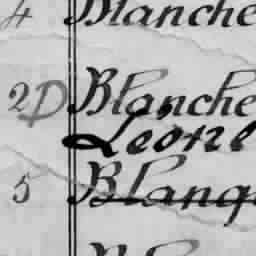 4 Blanche
2D Blanche
Leone
5 Blanq